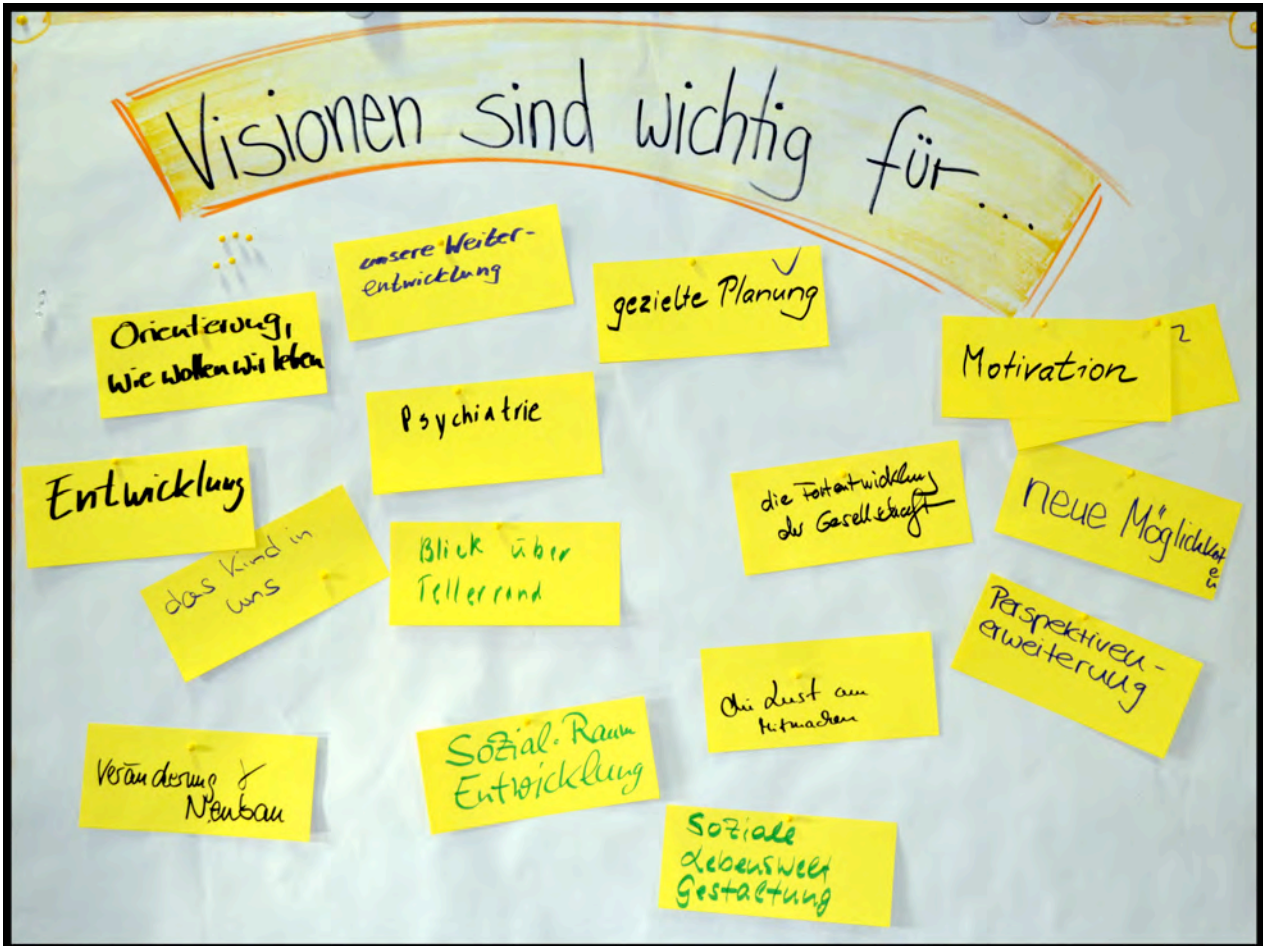 Visionen sind wichtig für...
unsere Weiter-
entwicklung
gezielte Planung
Orientierung,
wie wollen wir leben
Motivation
Psychiatrie
Entwicklung
die Fortentwicklung
der Gesellschaft
neue Möglichkeiten
das Kind in
uns
Blick über
Tellerrand
Perspektiven-
erweiterung
die Lust am
Mitmachen
Sozial-Raum
Entwicklung
Veränderung &
Neubau
Soziale
Lebenswelt
Gestaltung